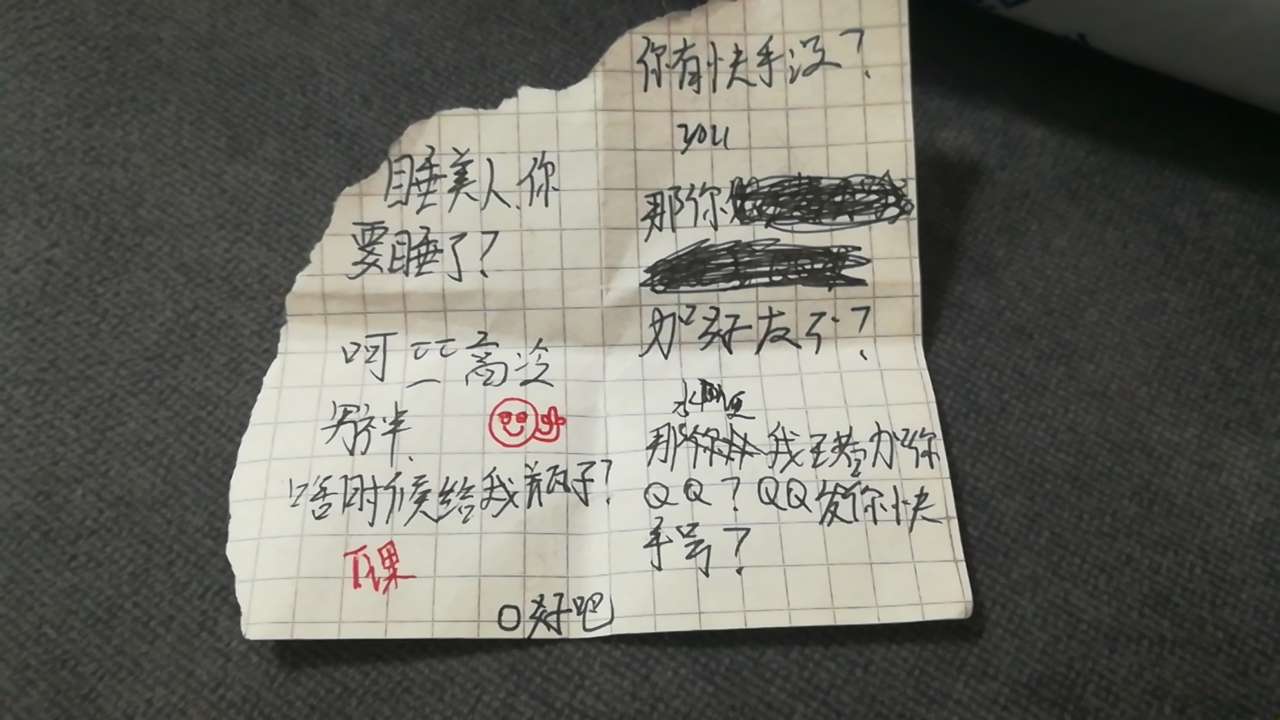 睡美人你
要睡了?
呵 高冷
啥时候给我 子?
下课
O好吧
你有快手没?
you
那你
加好友了?
那你 我 加你
QQ? QQ发你快
手号?